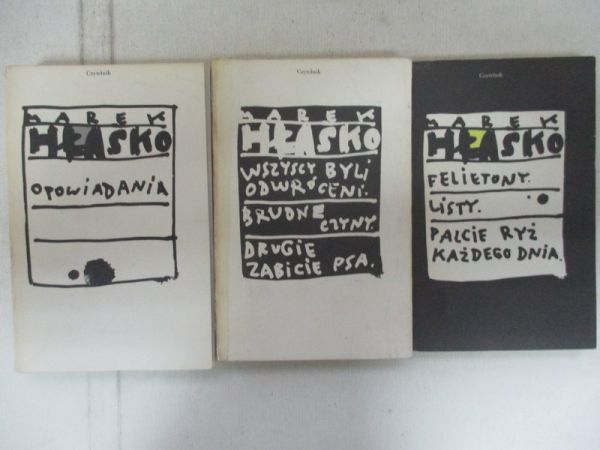 Czytelnik
MAREK
HŁASKO
OPOWIADANIA
Czytelnik
MAREK
HŁASKO
WSZYSCY BYLI
ODWRÓCENI.
BRUDNE
CZYNY.
DRUGIE
ZABICIE PSA.
Czytelnik
MAREK
HŁASKO
FELIETONY.
LISTY.
PALCIE RYŻ
KAŻDEGO DNIA.